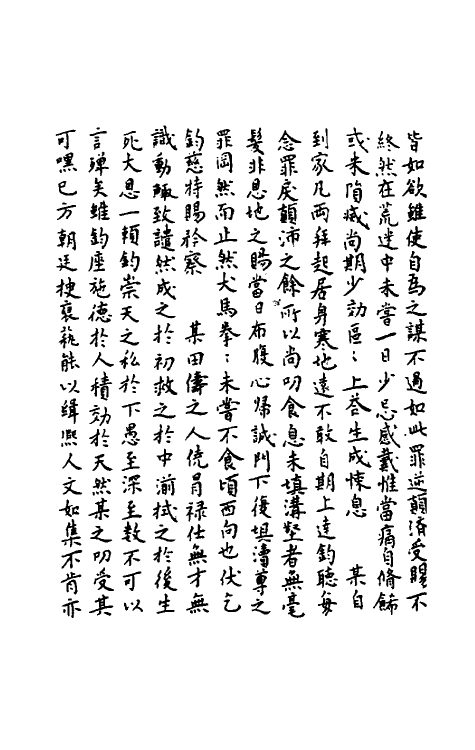 皆如欲雖使自為之謀不過如此罪逆顛隮受賜不
終然在荒迷中未嘗一日少忘感戴惟當痛自脩飾
或未隕滅尚期少効區〻上荅生成悚息　某自
到家凡兩拜起居身寒地遠不敢自期上達鈞聽每
念罪戾顛沛之餘所以尚叨食息未填溝壑者無毫
髮非息地之賜當日布腹心歸誠門下復塤瀆尊之
罪岡然而止然犬馬拳〻未嘗不食頃西向也伏乞
鈞慈特賜矜察　某田儔之人僥冒祿仕無才無
識動輒致譴然成之於初救之於中湔拭之於後生
死大恩一頼鈞崇天之私於下愚至深至敷不可以
言殫矣雖鈞座施德於人積効於天然某之叨受其
可嘿已方朝廷梗裒蓺能以緝熙人文如集不肯亦